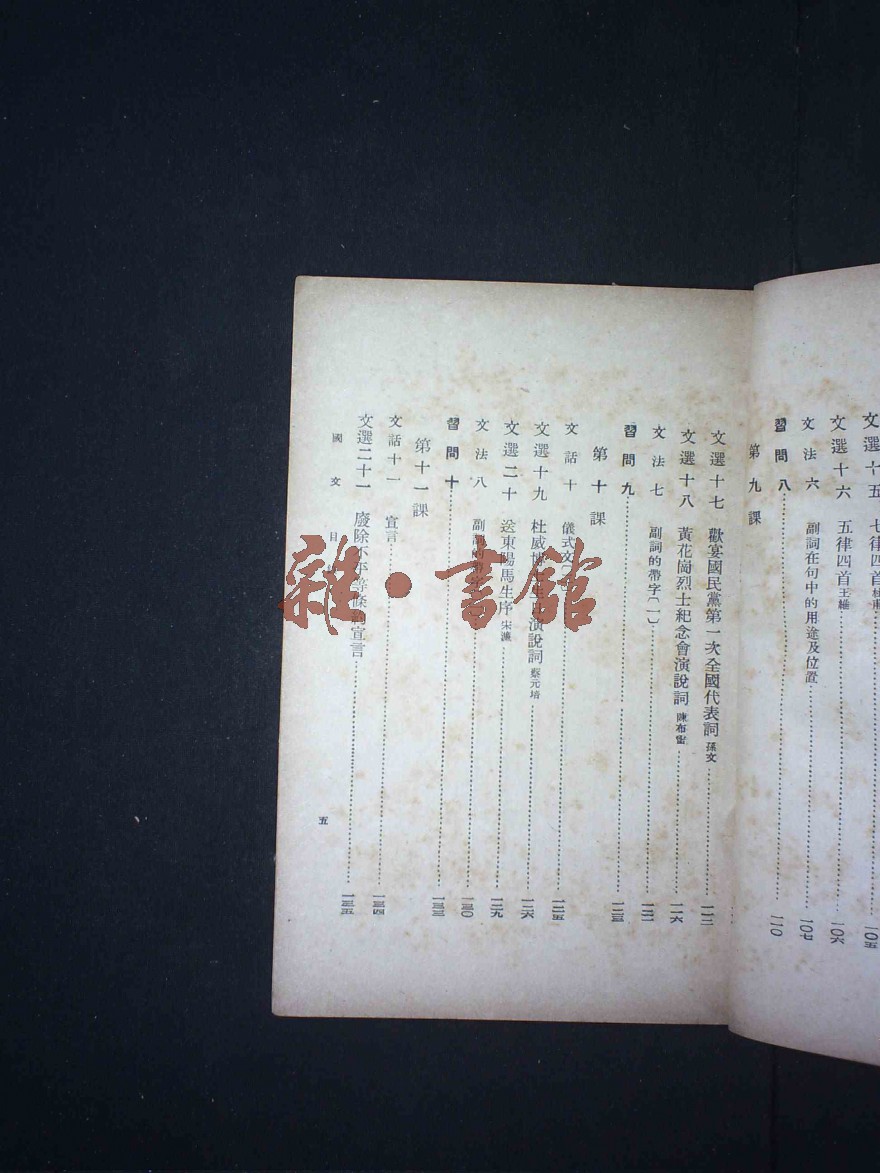 文選十五 七律四首杜甫 一〇五
文選十六 五律四首王維 一〇六
文法六 副詞在句中的用途及位置 一〇七
習問八 一一〇
第九課
文選十七 歡宴國民黨第一次全國代表詞 孫文 一一二
文選十八 黃花崗烈士紀念會演說詞 陳布雷 一一六
文法七 副詞的帶字(一) 一二一
習問九 一二三
第十課
文話十 儀式文( 一二五
文選十九 杜威博士生 演說詞 蔡元培 一二六
文選二十 送東陽馬生序 宋濂 一二九
文法八 副詞的帶字 一三〇
習問十 一三三
第十一課
文話十一 宣言 一三四
文選二十一 廢除不平等條約宣言 一三五
國文 目
五
雜·書館